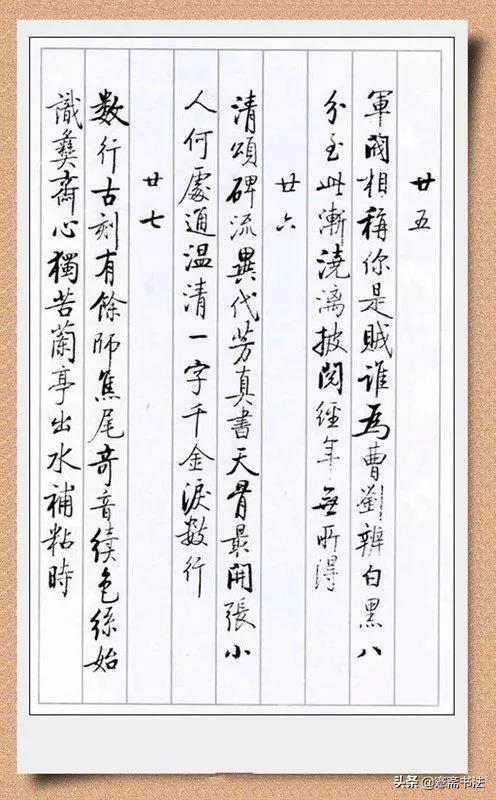 廿五
軍閥相稱你是賊誰為曹劉辨白黑八
分至此漸澆漓披閱經年無所得
廿六
清頌碑流異代芳真書天骨最開張小
人何處通温清一字千金淚数行
廿七
数行古刻有餘師焦尾奇音續色絲始
識彝齋心獨苦蘭亭出水補粘時
头条 @斋书法